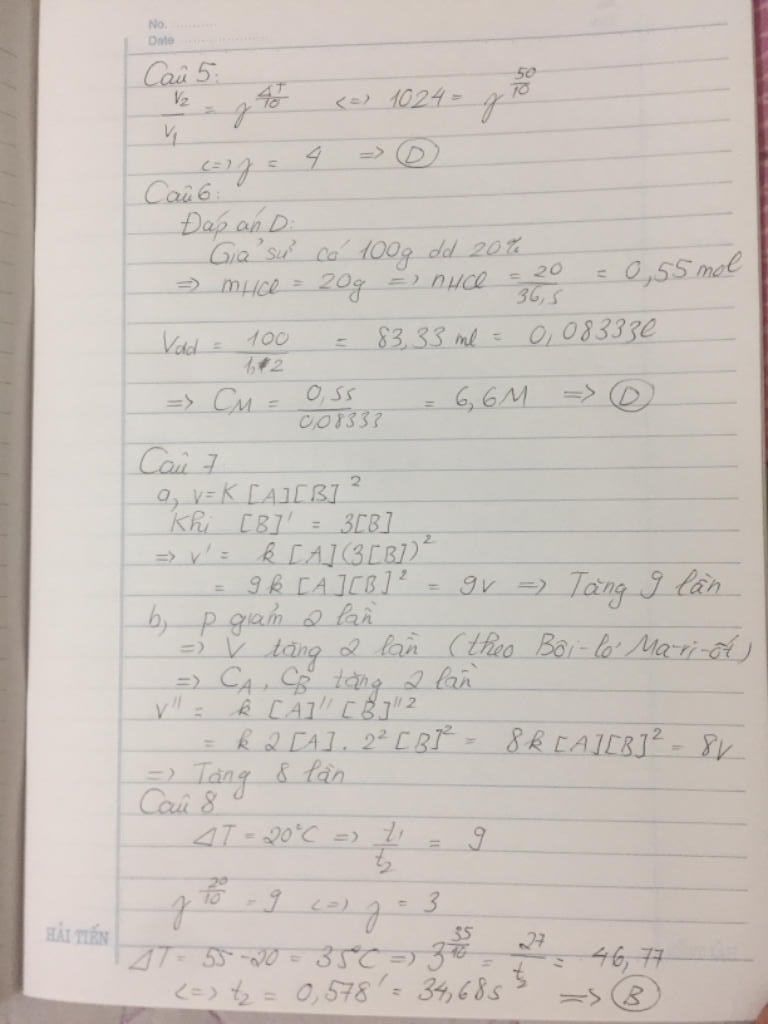 No. ............
Date ............
Câu 5:
V₂/V₁ = γ^(ΔT/10) <=> 1024 = γ^(50/10)
<=> γ = 4 => D
Câu 6:
Đáp án D:
Giả sử có 100g dd 20%
=> mHCl = 20g => nHCl = 20/36,5 = 0,55 mol
Vdd = 100/1,2 = 83,33 ml = 0,08333l
=> CM = 0,55/0,08333 = 6,6M => D
Câu 7
a, v = k [A][B]²
Khi [B]' = 3[B]
=> v' = k [A](3[B])²
= 9k [A][B]² = 9v => Tăng 9 lần
b, p giảm 2 lần
=> V tăng 2 lần (theo Bôi-lơ Ma-ri-ốt)
=> CA, CB tăng 2 lần
v'' = k [A]'' [B]''²
= k 2[A]. 2² [B]² = 8k [A][B]² = 8v
=> Tăng 8 lần
Câu 8
ΔT = 20°C => t₁/t₂ = 9
γ^(20/10) = 9 <=> γ = 3
HẢI TIẾN
ΔT = 55 - 20 = 35°C => 3^(35/10) = 27/t₃ = 46,77
<=> t₂ = 0,578' = 34,68s => B